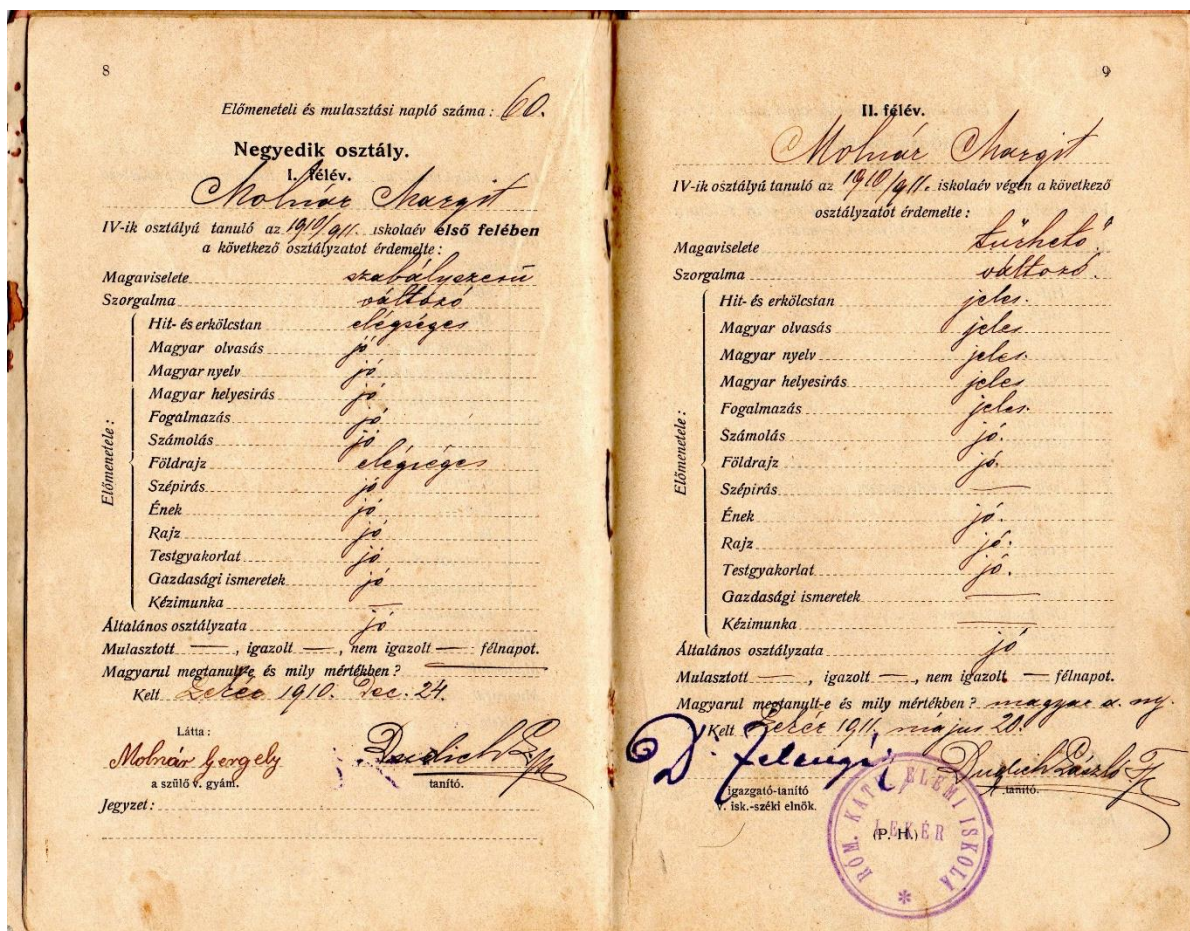 8
Előmeneteli és mulasztási napló száma: 60.
Negyedik osztály.
I. félév.
Molnár Margit
IV-ik osztályú tanuló az 1910/911. iskolaév első felében
a következő osztályzatot érdemelte:
Magaviselete szabályszerű
Szorgalma változó
Előmenetele:
Hit- és erkölcstan elégséges
Magyar olvasás jó
Magyar nyelv jó
Magyar helyesirás jó
Fogalmazás jó
Számolás jó
Földrajz elégséges
Szépirás jó
Ének jó
Rajz jó
Testgyakorlat jó
Gazdasági ismeretek jó
Kézimunka —
Általános osztályzata jó
Mulasztott —, igazolt —, nem igazolt — félnapot.
Magyarul megtanult-e és mily mértékben? —
Kelt Lekér 1910. Dec. 24.
Látta:
Molnár Gergely
a szülő v. gyám.
Dudich
tanító.
Jegyzet:
9
II. félév.
Molnár Margit
IV-ik osztályú tanuló az 1910/911. iskolaév végén a következő
osztályzatot érdemelte:
Magaviselete tűrhető
Szorgalma változó.
Előmenetele:
Hit- és erkölcstan jeles.
Magyar olvasás jeles
Magyar nyelv jeles.
Magyar helyesirás jeles
Fogalmazás jeles.
Számolás jó.
Földrajz jó.
Szépirás —
Ének jó.
Rajz jó.
Testgyakorlat jó.
Gazdasági ismeretek —
Kézimunka —
Általános osztályzata jó
Mulasztott —, igazolt —, nem igazolt — félnapot.
Magyarul megtanult-e és mily mértékben? magyar a. ny.
Kelt Lekér 1911. május 20.
Dudich László
igazgató-tanító
v. isk.-széki elnök.
tanító.
(P. H.)
RÓM. KATH. ELEMI ISKOLA
LEKÉR